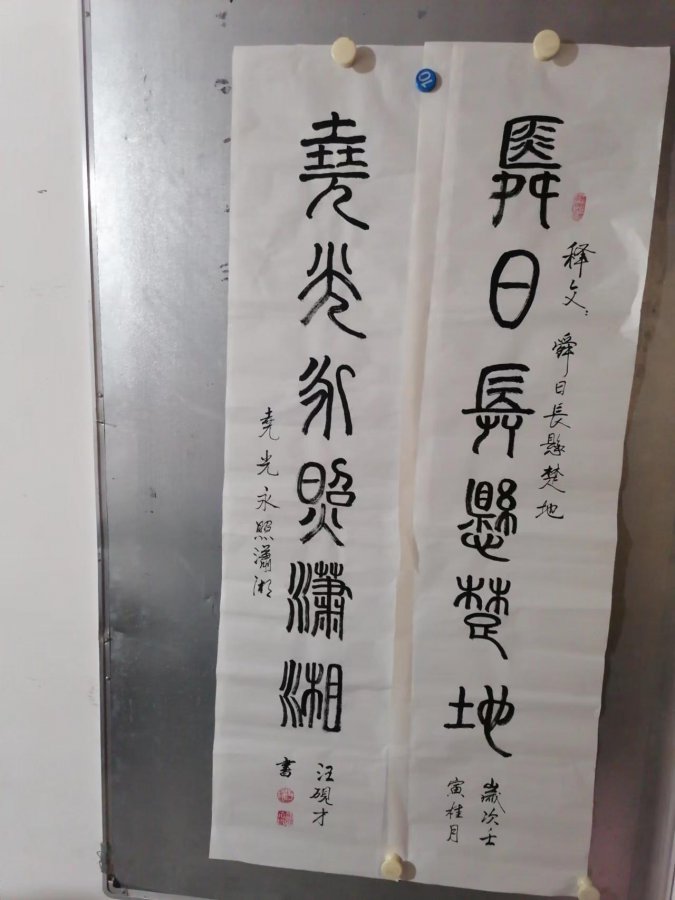 舜日長懸楚地
释文：舜日長懸楚地
歲次壬
寅桂月
堯光永照瀟湘
堯光永照瀟湘
汪硯才
書
10